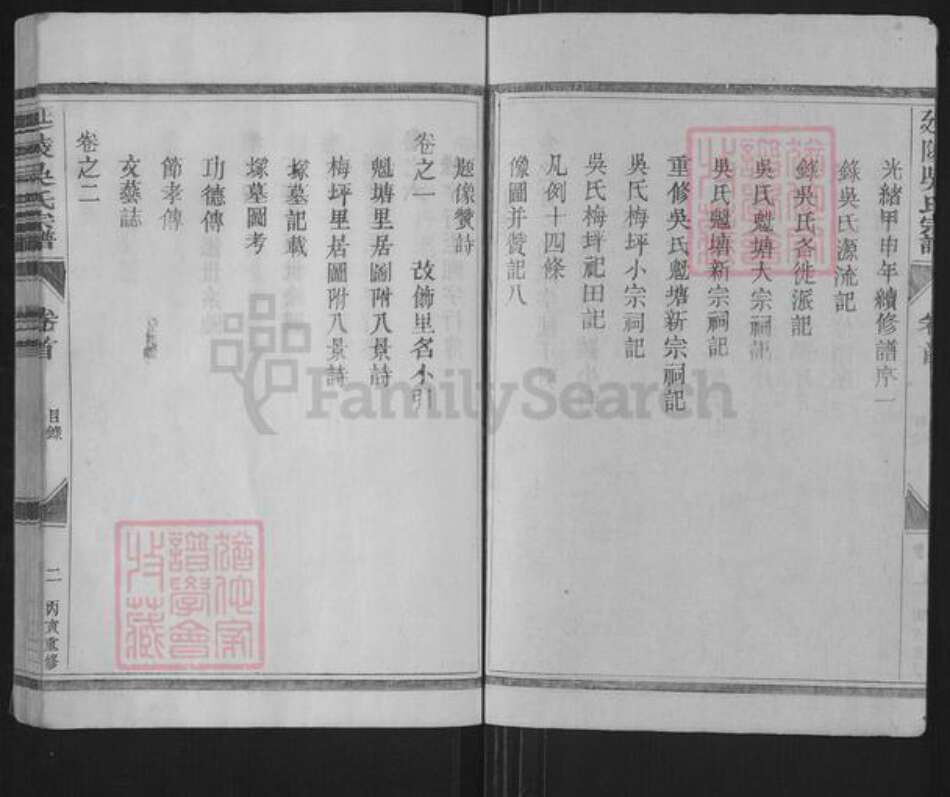 光緒甲申年續修譜序一
錄吳氏源流記
錄吳氏各徙派記
吳氏魁塘大宗祠記
吳氏魁塘新宗祠記
重修吳氏魁塘新宗祠記
吳氏梅坪小宗祠記
吳氏梅坪祀田記
凡例十四條
像圖并贊記八
題像贊詩
卷之一 改飾里名小引
魁塘里居圖附八景詩
梅坪里居圖附八景詩
塚墓記載
塚墓圖考
功德傳
節孝傳
文藝誌
卷之二
延陵吳氏宗譜 卷首 目錄 二 丙寅重修
譜學會
收藏
FamilySearch